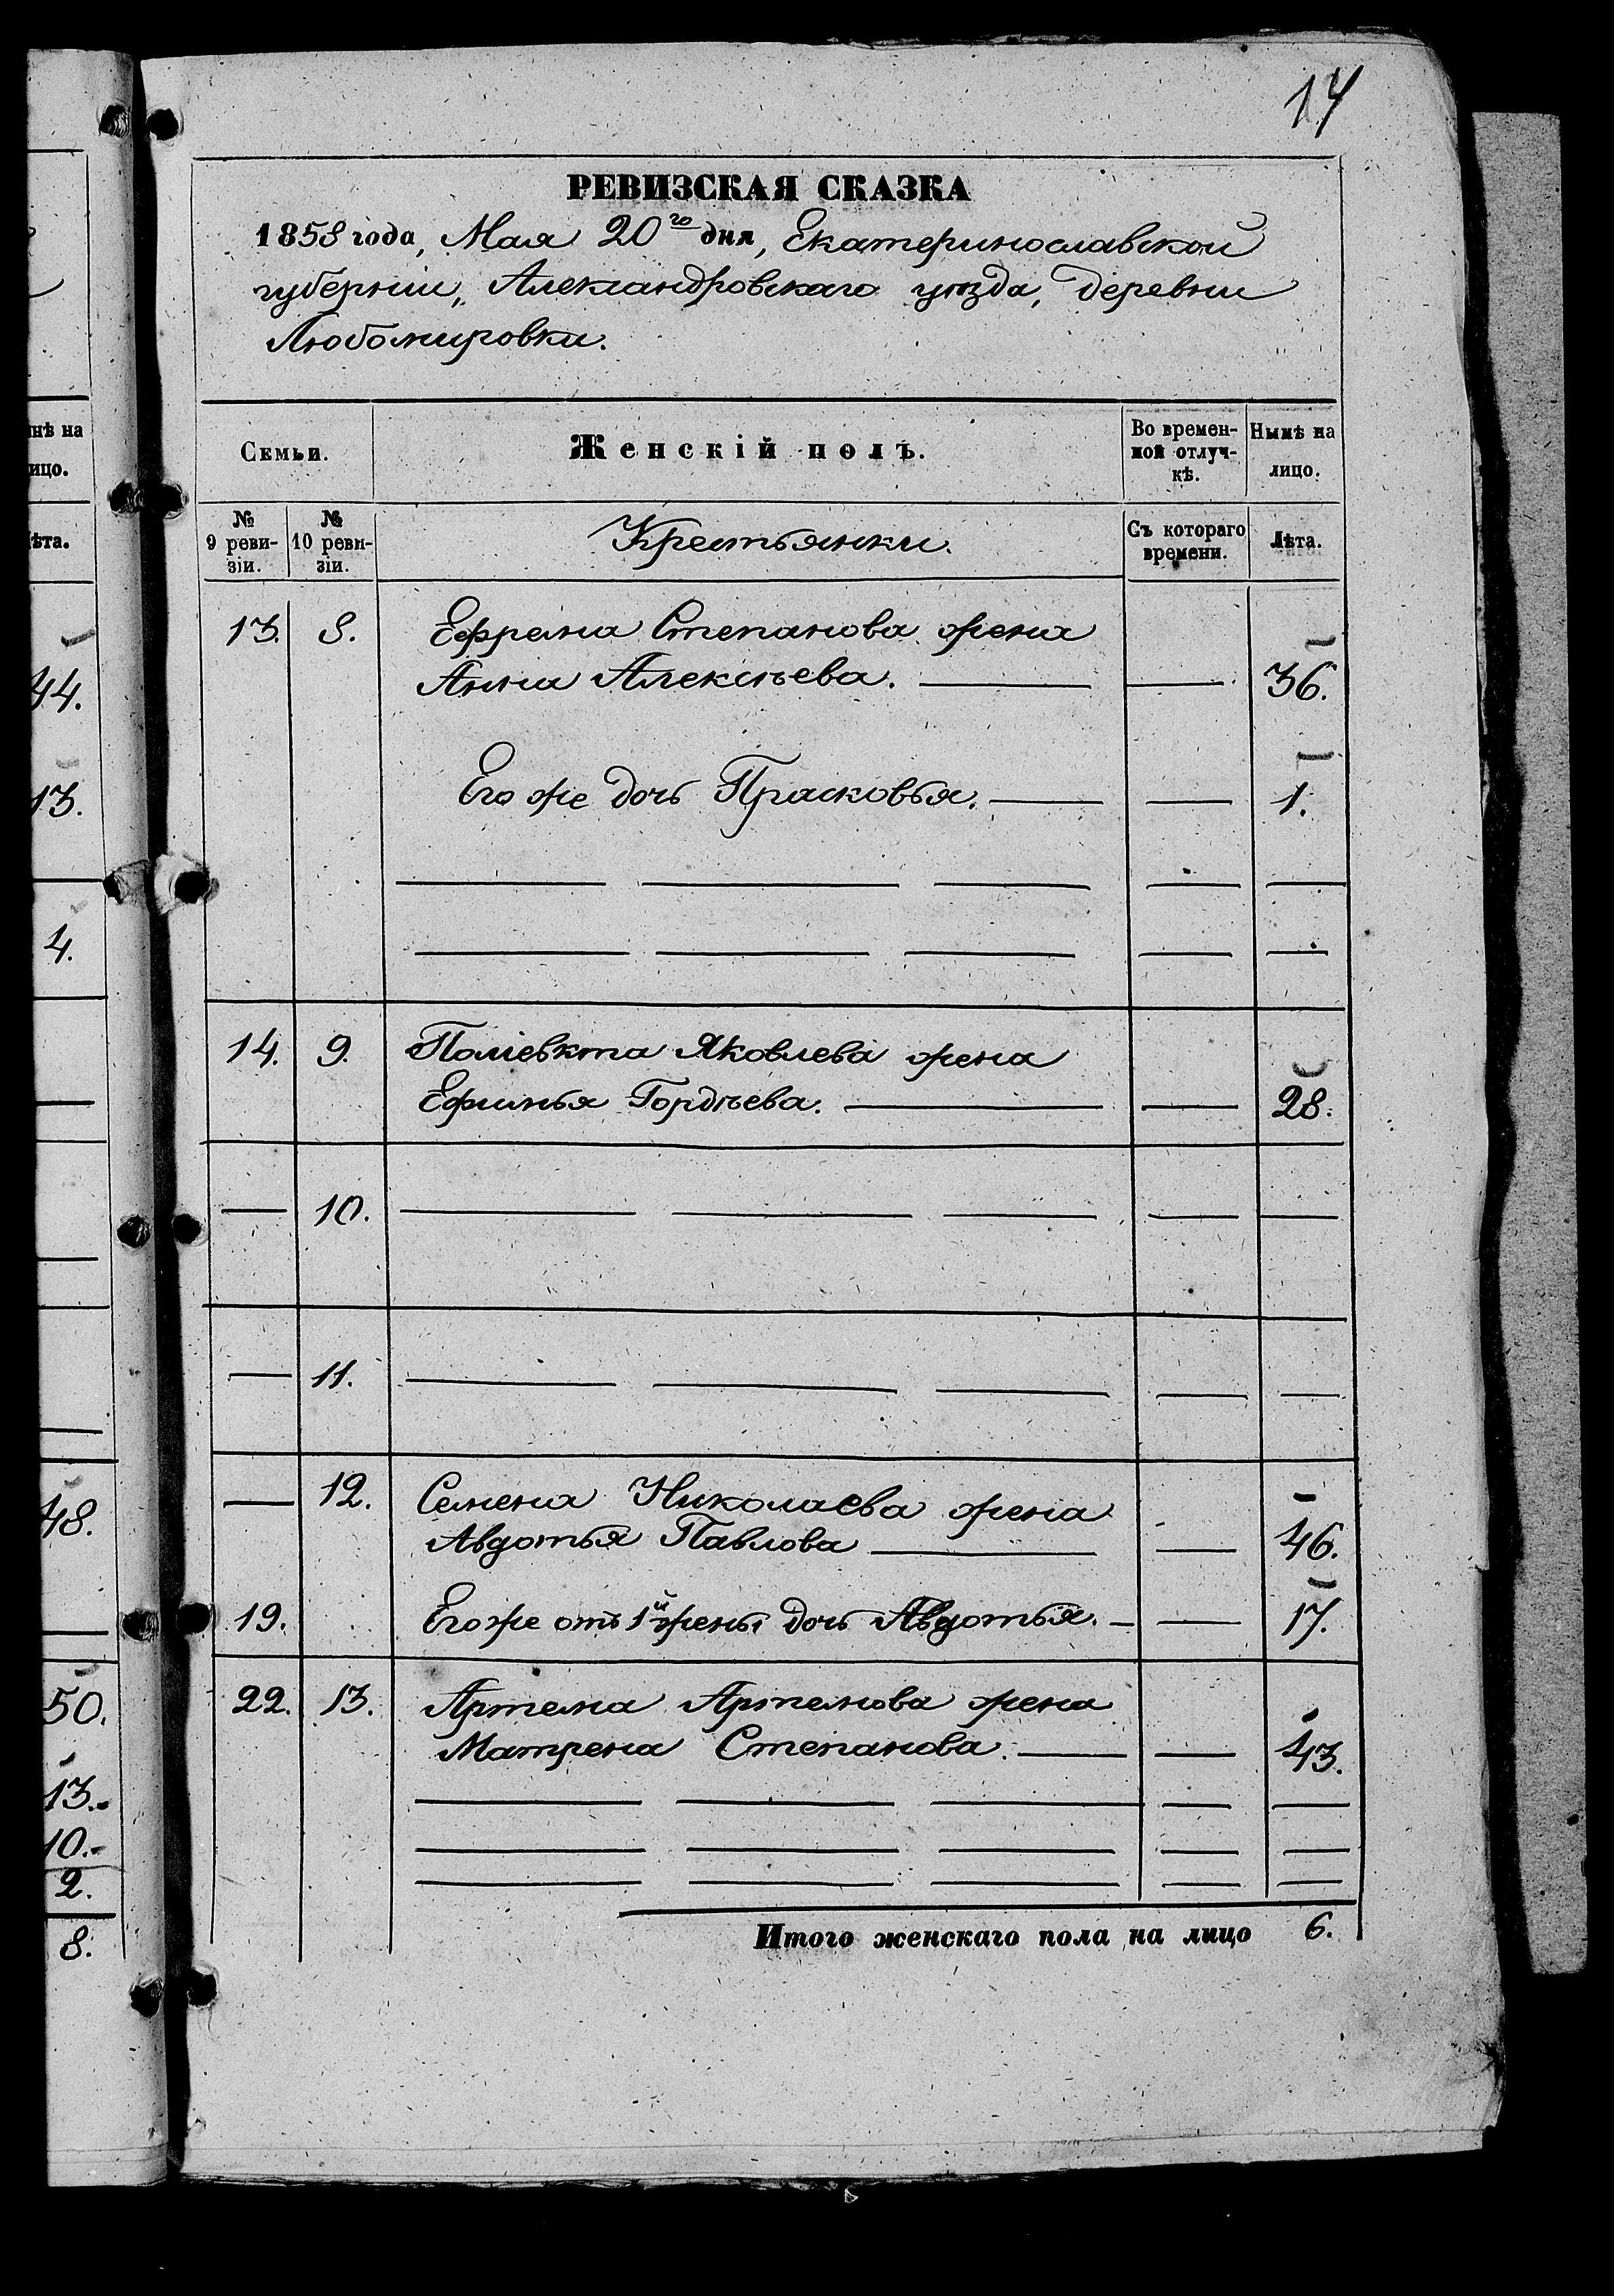 14
РЕВИЗСКАЯ СКАЗКА
1858 года, Мая 20го дня, Екатеринославской
губерніи, Александровскаго уѣзда, деревни
Любомировки.
Семьи.
Женскій полъ.
Во времен-
ной отлуч-
кѣ.
Нынѣ на
лицо.
№
9 реви-
зіи.
№
10 реви-
зіи.
Крестьянки.
Съ котораго
времени.
Лѣта.
13. 8. Ефрема Степанова жена
Анна Алексѣева. 36.
Его же дочь Прасковья. 1.
14. 9. Поліевкта Яковлева жена
Ефимья Гордѣева. 28.
10.
11.
12. Семена Николаева жена
Авдотья Павлова 46.
19. Его же отъ 1й жены дочь Авдотья. 17.
22. 13. Артема Артемова жена
Матрена Степанова. 43.
Итого женскаго пола на лицо 6.
нѣ на
ицо.
ѣта.
44.
13.
4.
48.
50.
13.
10.
2.
8.